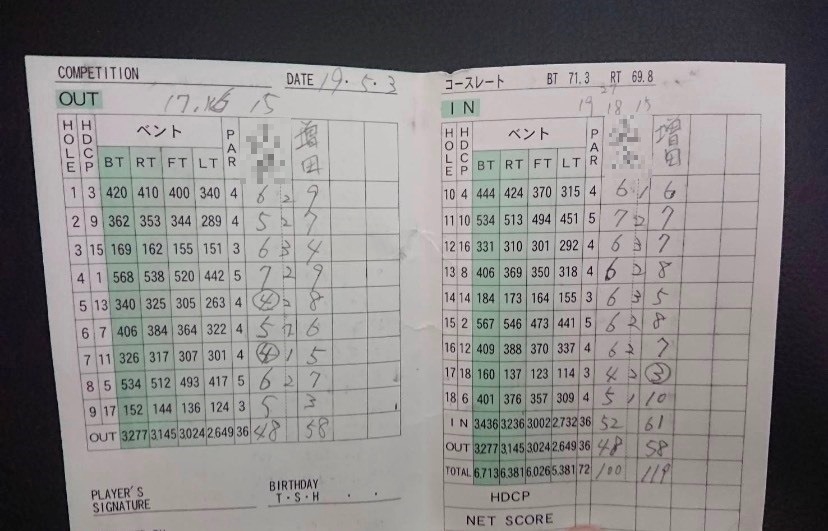 COMPETITION DATE 19・5・3
OUT 15
HOLE HDCP ベント PAR 増田
BT RT FT LT
1 3 420 410 400 340 4 6 2 9
2 9 362 353 344 289 4 5 2 7
3 15 169 162 155 151 3 6 3 4
4 1 568 538 520 442 5 7 2 9
5 13 340 325 305 263 4 4 2 8
6 7 406 384 364 322 4 5 6
7 11 326 317 307 301 4 4 1 5
8 5 534 512 493 417 5 6 2 7
9 17 152 144 136 124 3 5 3
OUT 3277 3,145 3,024 2,649 36 48 58
PLAYER'S
SIGNATURE
BIRTHDAY
T・S・H ・ ・
コースレート BT 71.3 RT 69.8
IN 19 18 15
HOLE HDCP ベント PAR 増田
BT RT FT LT
10 4 444 424 370 315 4 6 1 6
11 10 534 513 494 451 5 7 2 7
12 16 331 310 301 292 4 6 3 7
13 8 406 369 350 318 4 6 2 8
14 14 184 173 164 155 3 6 3 5
15 2 567 546 473 441 5 6 2 8
16 12 409 388 370 337 4 6 2 7
17 18 160 137 123 114 3 4 2 3
18 6 401 376 357 309 4 5 1 10
IN 3436 3236 3,002 2,732 36 52 61
OUT 3277 3,145 3,024 2,649 36 48 58
TOTAL 6,713 6,381 6,026 5,381 72 100 119
HDCP
NET SCORE